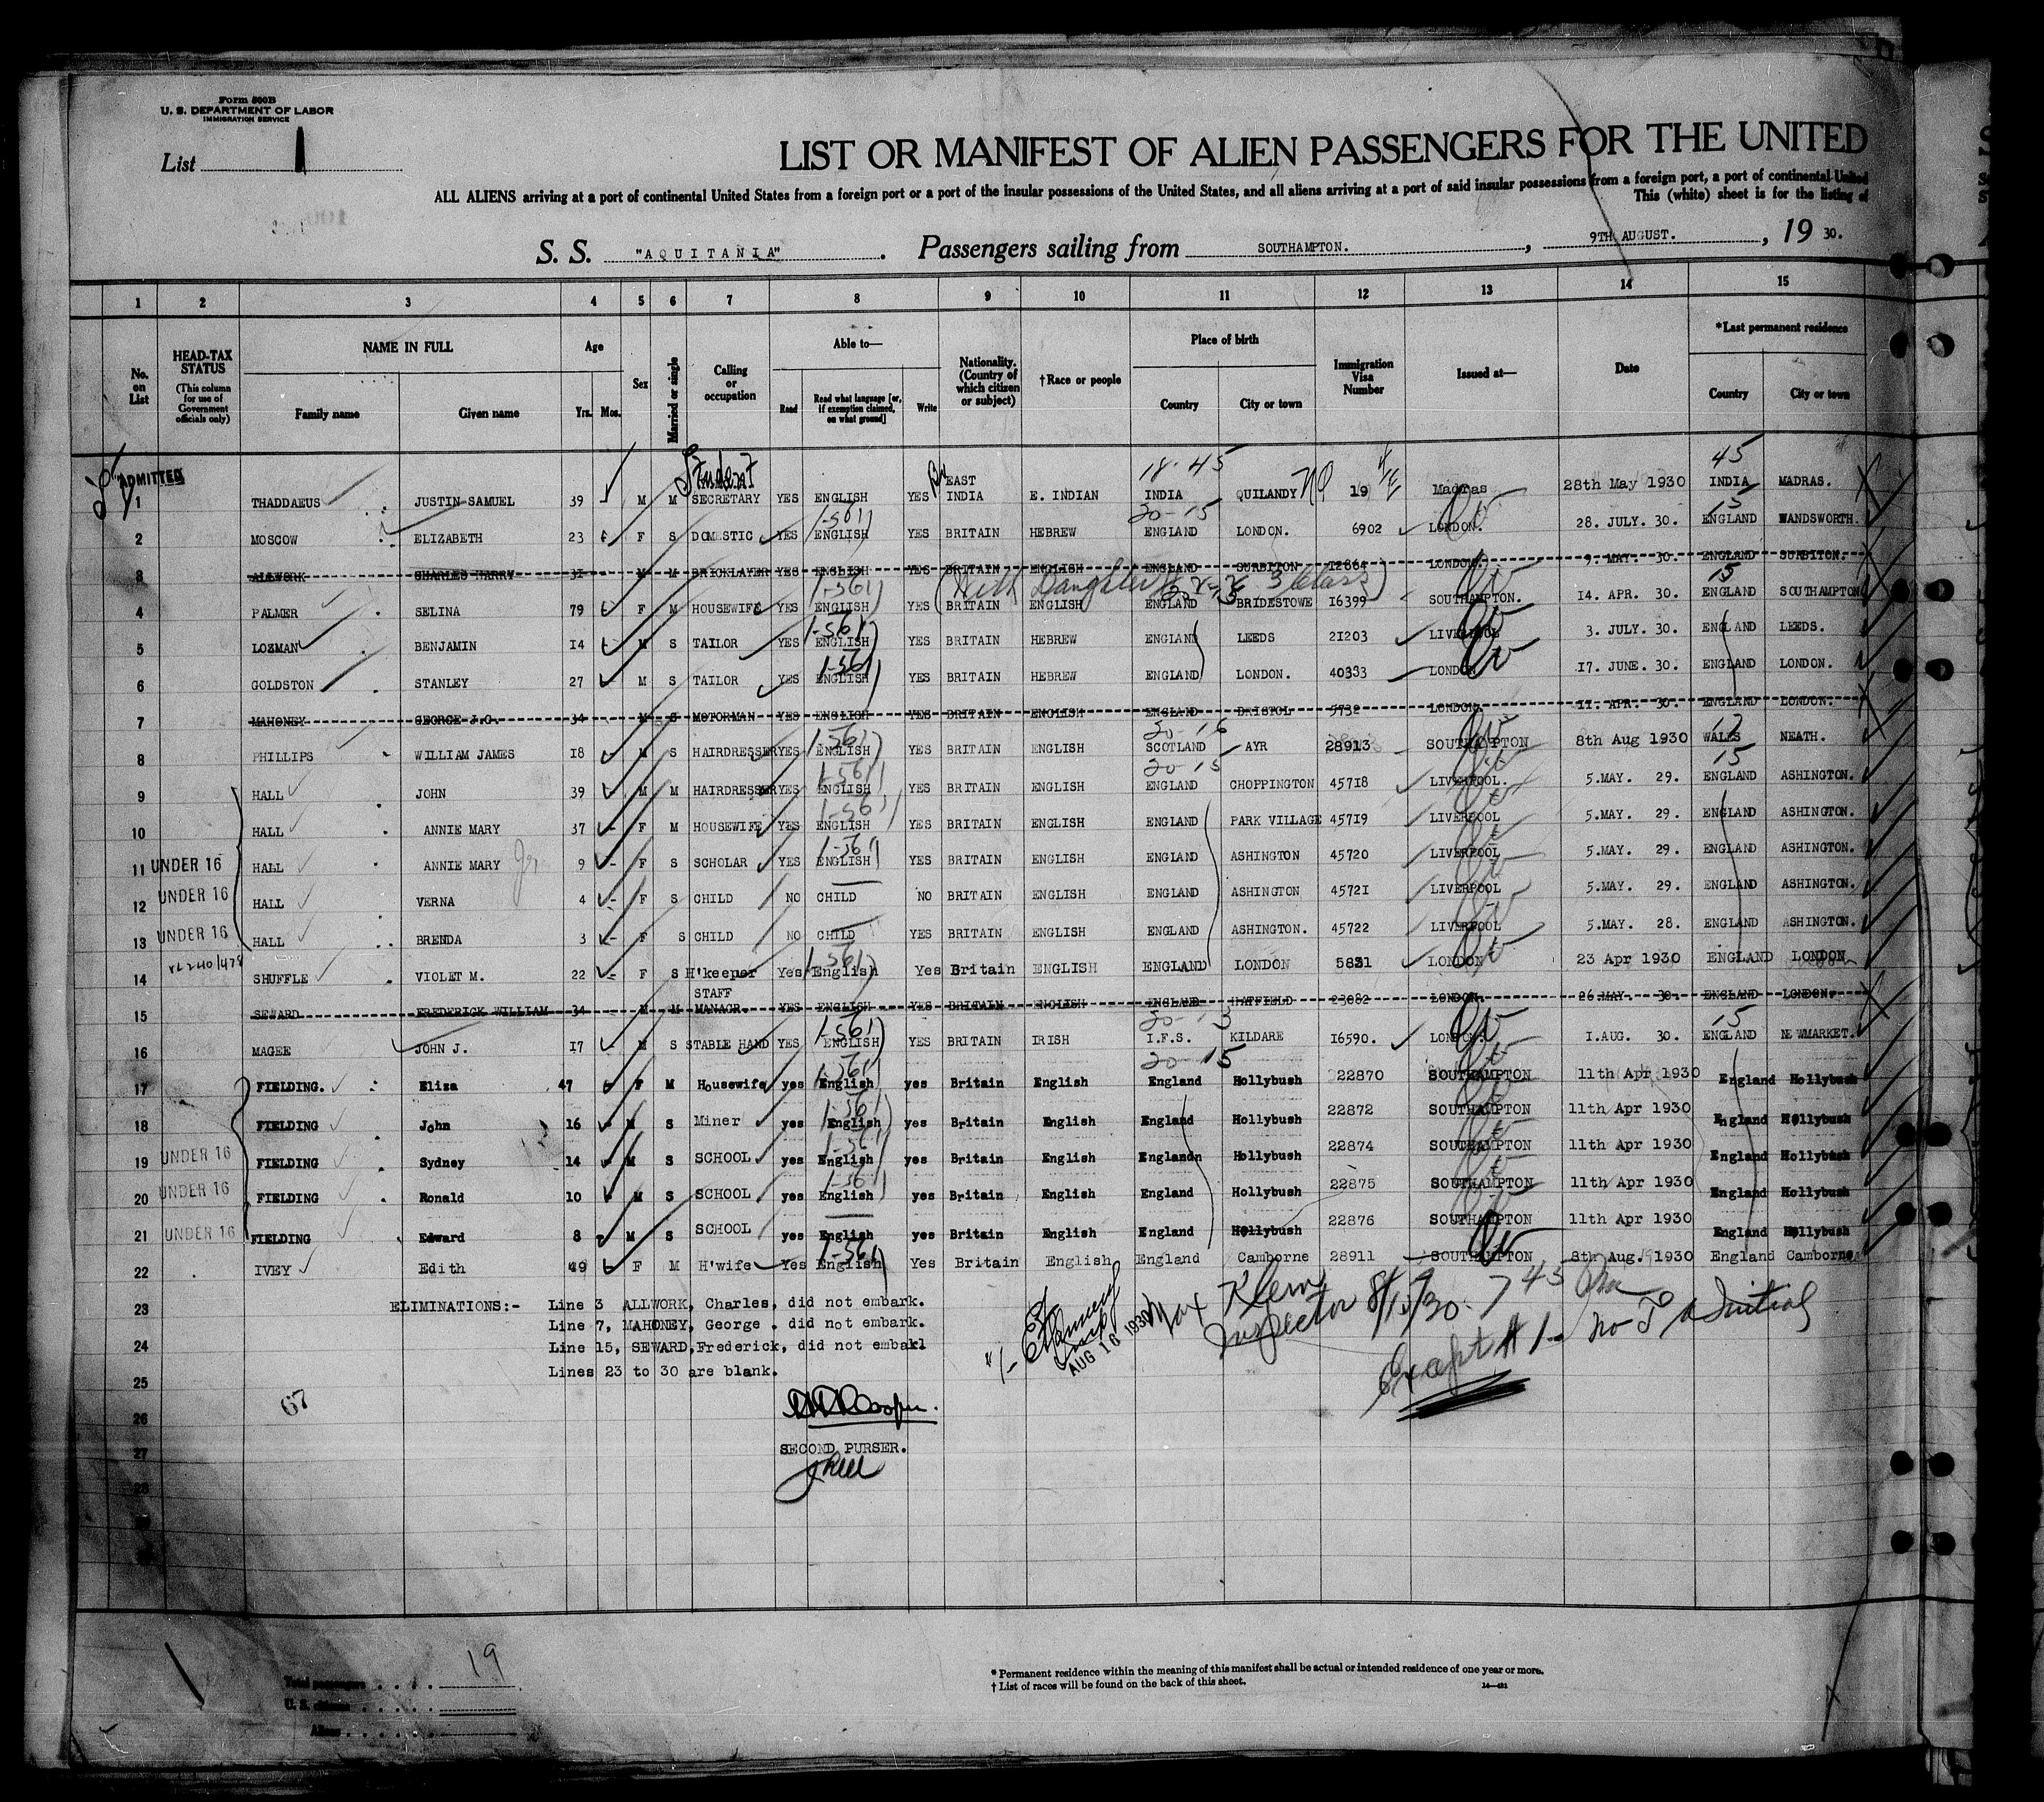 Form 500B
U. S. DEPARTMENT OF LABOR
IMMIGRATION SERVICE
List 1
LIST OR MANIFEST OF ALIEN PASSENGERS FOR THE UNITED
ALL ALIENS arriving at a port of continental United States from a foreign port or a port of the insular possessions of the United States, and all aliens arriving at a port of said insular possessions from a foreign port, a port of continental United
This (white) sheet is for the listing of
S. S. "AQUITANIA" . Passengers sailing from SOUTHAMPTON. , 9TH AUGUST. , 19 30.
1 2 3 4 5 6 7 8 9 10 11 12 13 14 15
No. on List
HEAD-TAX STATUS (This column for use of Government officials only)
NAME IN FULL
Family name Given name
Age
Yrs. Mos.
Sex
Married or single
Calling or occupation
Able to—
Read Read what language [or, if exemption claimed, on what ground] Write
Nationality. (Country of which citizen or subject)
†Race or people
Place of birth
Country City or town
Immigration Visa Number
Issued at—
Date
*Last permanent residence
Country City or town
ADMITTED Student 18-45 45
1 THADDAEUS JUSTIN SAMUEL 39 M M SECRETARY YES ENGLISH YES EAST INDIA E. INDIAN INDIA QUILANDY NQ 19 Madras 28th May 1930 INDIA MADRAS.
1-561 20-15 15
2 MOSCOW ELIZABETH 23 F S DOMESTIC YES ENGLISH YES BRITAIN HEBREW ENGLAND LONDON. 6902 LONDON. 28. JULY. 30. ENGLAND WANDSWORTH.
3 ALLWORK CHARLES HARRY 31 M M BRICKLAYER YES ENGLISH YES BRITAIN ENGLISH ENGLAND SURBITON 12864 LONDON. 9. MAY. 30. ENGLAND SURBITON.
1-561 (With Daughter 3 Class) 15
4 PALMER SELINA 79 F M HOUSEWIFE YES ENGLISH YES BRITAIN ENGLISH ENGLAND BRIDESTOWE 16399 SOUTHAMPTON. 14. APR. 30. ENGLAND SOUTHAMPTON
1-561
5 LOZMAN BENJAMIN 14 M S TAILOR YES ENGLISH YES BRITAIN HEBREW ENGLAND LEEDS 21203 LIVERPOOL 3. JULY. 30. ENGLAND LEEDS.
1-561
6 GOLDSTON STANLEY 27 M S TAILOR YES ENGLISH YES BRITAIN HEBREW ENGLAND LONDON. 40333 LONDON 17. JUNE. 30. ENGLAND LONDON.
7 MAHONEY GEORGE J.C. 34 M S MOTORMAN YES ENGLISH YES BRITAIN ENGLISH ENGLAND BRISTOL 5732 LONDON. 11. APR. 30. ENGLAND LONDON.
1-561 20-16 17
8 PHILLIPS WILLIAM JAMES 18 M S HAIRDRESSER YES ENGLISH YES BRITAIN ENGLISH SCOTLAND AYR 28913 SOUTHAMPTON 8th Aug 1930 WALES NEATH.
1-561 20-15 15
9 HALL JOHN 39 M M HAIRDRESSER YES ENGLISH YES BRITAIN ENGLISH ENGLAND CHOPPINGTON 45718 LIVERPOOL. 5.MAY. 29. ENGLAND ASHINGTON.
1-561
10 HALL ANNIE MARY 37 F M HOUSEWIFE YES ENGLISH YES BRITAIN ENGLISH ENGLAND PARK VILLAGE 45719 LIVERPOOL 5.MAY. 29. ENGLAND ASHINGTON.
1-561
11 UNDER 16 HALL ANNIE MARY Jr. 9 F S SCHOLAR YES ENGLISH YES BRITAIN ENGLISH ENGLAND ASHINGTON 45720 LIVERPOOL 5.MAY. 29. ENGLAND ASHINGTON.
12 UNDER 16 HALL VERNA 4 F S CHILD NO CHILD NO BRITAIN ENGLISH ENGLAND ASHINGTON 45721 LIVERPOOL 5.MAY. 29. ENGLAND ASHINGTON.
13 UNDER 16 HALL BRENDA 3 F S CHILD NO CHILD YES BRITAIN ENGLISH ENGLAND ASHINGTON. 45722 LIVERPOOL 5.MAY. 28. ENGLAND ASHINGTON.
1-561
14 SHUFFLE VIOLET M. 22 F S H'keeper Yes English Yes Britain ENGLISH ENGLAND LONDON 5831 LONDON 23 Apr 1930 ENGLAND LONDON
15 SEWARD FREDERICK WILLIAM 34 M M STAFF MANAGR. YES ENGLISH YES BRITAIN ENGLISH ENGLAND HATFIELD 23082 LONDON. 26 MAY. 30. ENGLAND LONDON.
1-561 20-13 15
16 MAGEE JOHN J. 17 M S STABLE HAND YES ENGLISH YES BRITAIN IRISH I.F.S. KILDARE 16590. LONDON. 1.AUG. 30. ENGLAND NEWMARKET.
1-561 20-15
17 FIELDING. Eliza 47 F M Housewife yes English yes Britain English England Hollybush 22870 SOUTHAMPTON 11th Apr 1930 England Hollybush
1-561
18 FIELDING John 16 M S Miner yes English yes Britain English England Hollybush 22872 SOUTHAMPTON 11th Apr 1930 England Hollybush
1-561
19 UNDER 16 FIELDING Sydney 14 M S SCHOOL yes English yes Britain English Englandn Hollybush 22874 SOUTHAMPTON 11th Apr 1930 England Hollybush
1-561
20 UNDER 16 FIELDING Ronald 10 M S SCHOOL yes English yes Britain English England Hollybush 22875 SOUTHAMPTON 11th Apr 1930 England Hollybush
21 UNDER 16 FIELDING Edward 8 M S SCHOOL yes English yes Britain English England Hollybush 22876 SOUTHAMPTON 11th Apr 1930 England Hollybush
1-561
22 IVEY Edith 49 F M H'wife Yes English Yes Britain English England Camborne 28911 SOUTHAMPTON 8th Aug. 1930 England Camborne
23 ELIMINATIONS:- Line 3 ALLWORK, Charles, did not embark.
Line 7, MAHONEY, George . did not embark.
24 Line 15, SEWARD,Frederick, did not embakl
Lines 23 to 30 are blank.
AUG 16 1930
Max Klein
Inspector 8/15/30. 745 Pm
Except #1 - no T/A Initial
25
26 67
SECOND PURSER.
27
28
Total passengers 19
U. S. citizens
Aliens
* Permanent residence within the meaning of this manifest shall be actual or intended residence of one year or more.
† List of races will be found on the back of this sheet.